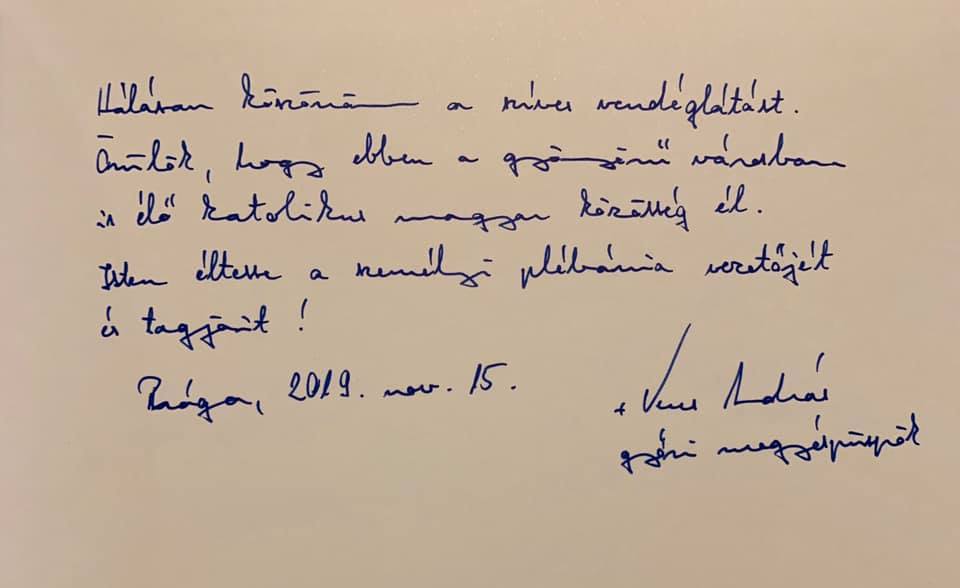 Hálásan köszönöm a szíves vendéglátást.
Örülök, hogy ebben a gyönyörű városban
is élő katolikus magyar közösség él.
Isten éltesse a személyi plébánia vezetőjét
és tagjait!
Prága, 2019. nov. 15.
+ Veres András
győri megyéspüspök